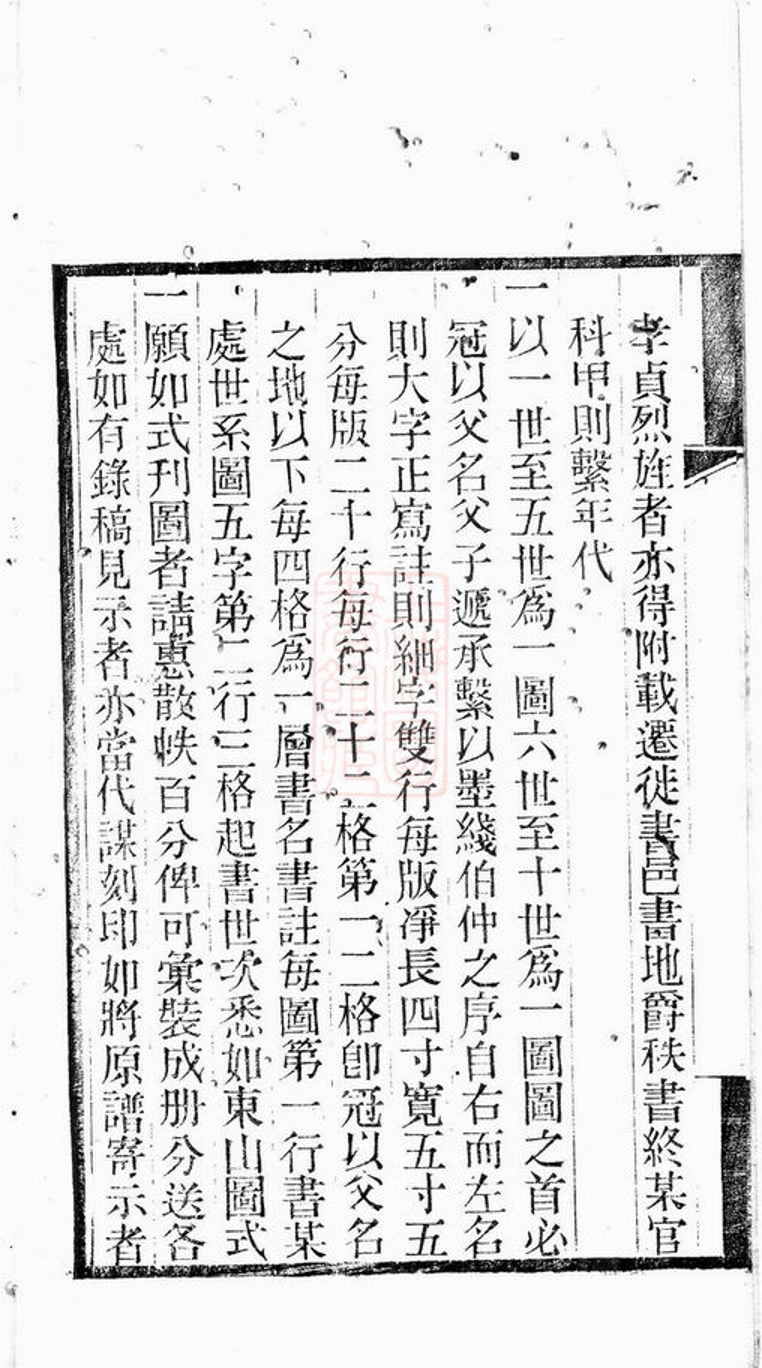 孝貞烈旌者亦得附載遷徙書邑書地爵秩書終某官
科甲則繫年代
一以一世至五世爲一圖六世至十世爲一圖圖之首必
冠以父名父子遞承繫以墨綫伯仲之序自右而左名
則大字正寫註則細字雙行每版淨長四寸寬五寸五
分每版二十行每行二十二格第一二格卽冠以父名
之地以下每四格爲一層書名書註每圖第一行書某
處世系圖五字第二行三格起書世次悉如東山圖式
一願如式刊圖者請惠散帙百分俾可彙裝成册分送各
處如有錄稿見示者亦當代謀刻印如將原譜寄示者